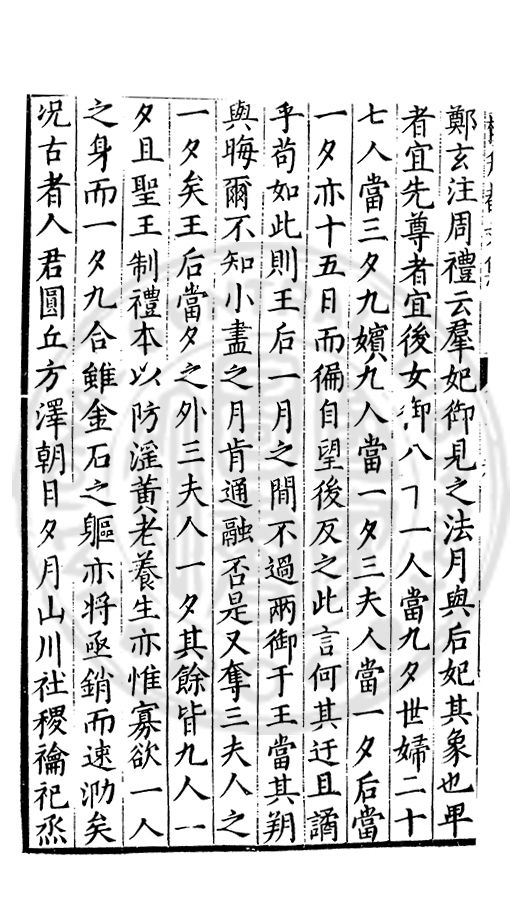 鄭玄注周禮云羣妃御見之法月與后妃其象也卑
者宜先尊者宜後女御八十一人當九夕世婦二十
七人當三夕九嬪九人當一夕三夫人當一夕后當
一夕亦十五日而徧自望後反之此言何其迂且譎
乎苟如此則王后一月之間不過兩御于王當其朔
與晦爾不知小盡之月肯通融否是又奪三夫人之
一夕矣王后當夕之外三夫人一夕其餘皆九人一
夕且聖王制禮本以防滛黃老養生亦惟寡欲一人
之身而一夕九合雖金石之軀亦將亟銷而速泐矣
况古者人君圓丘方澤朝日夕月山川社稷禴祀烝